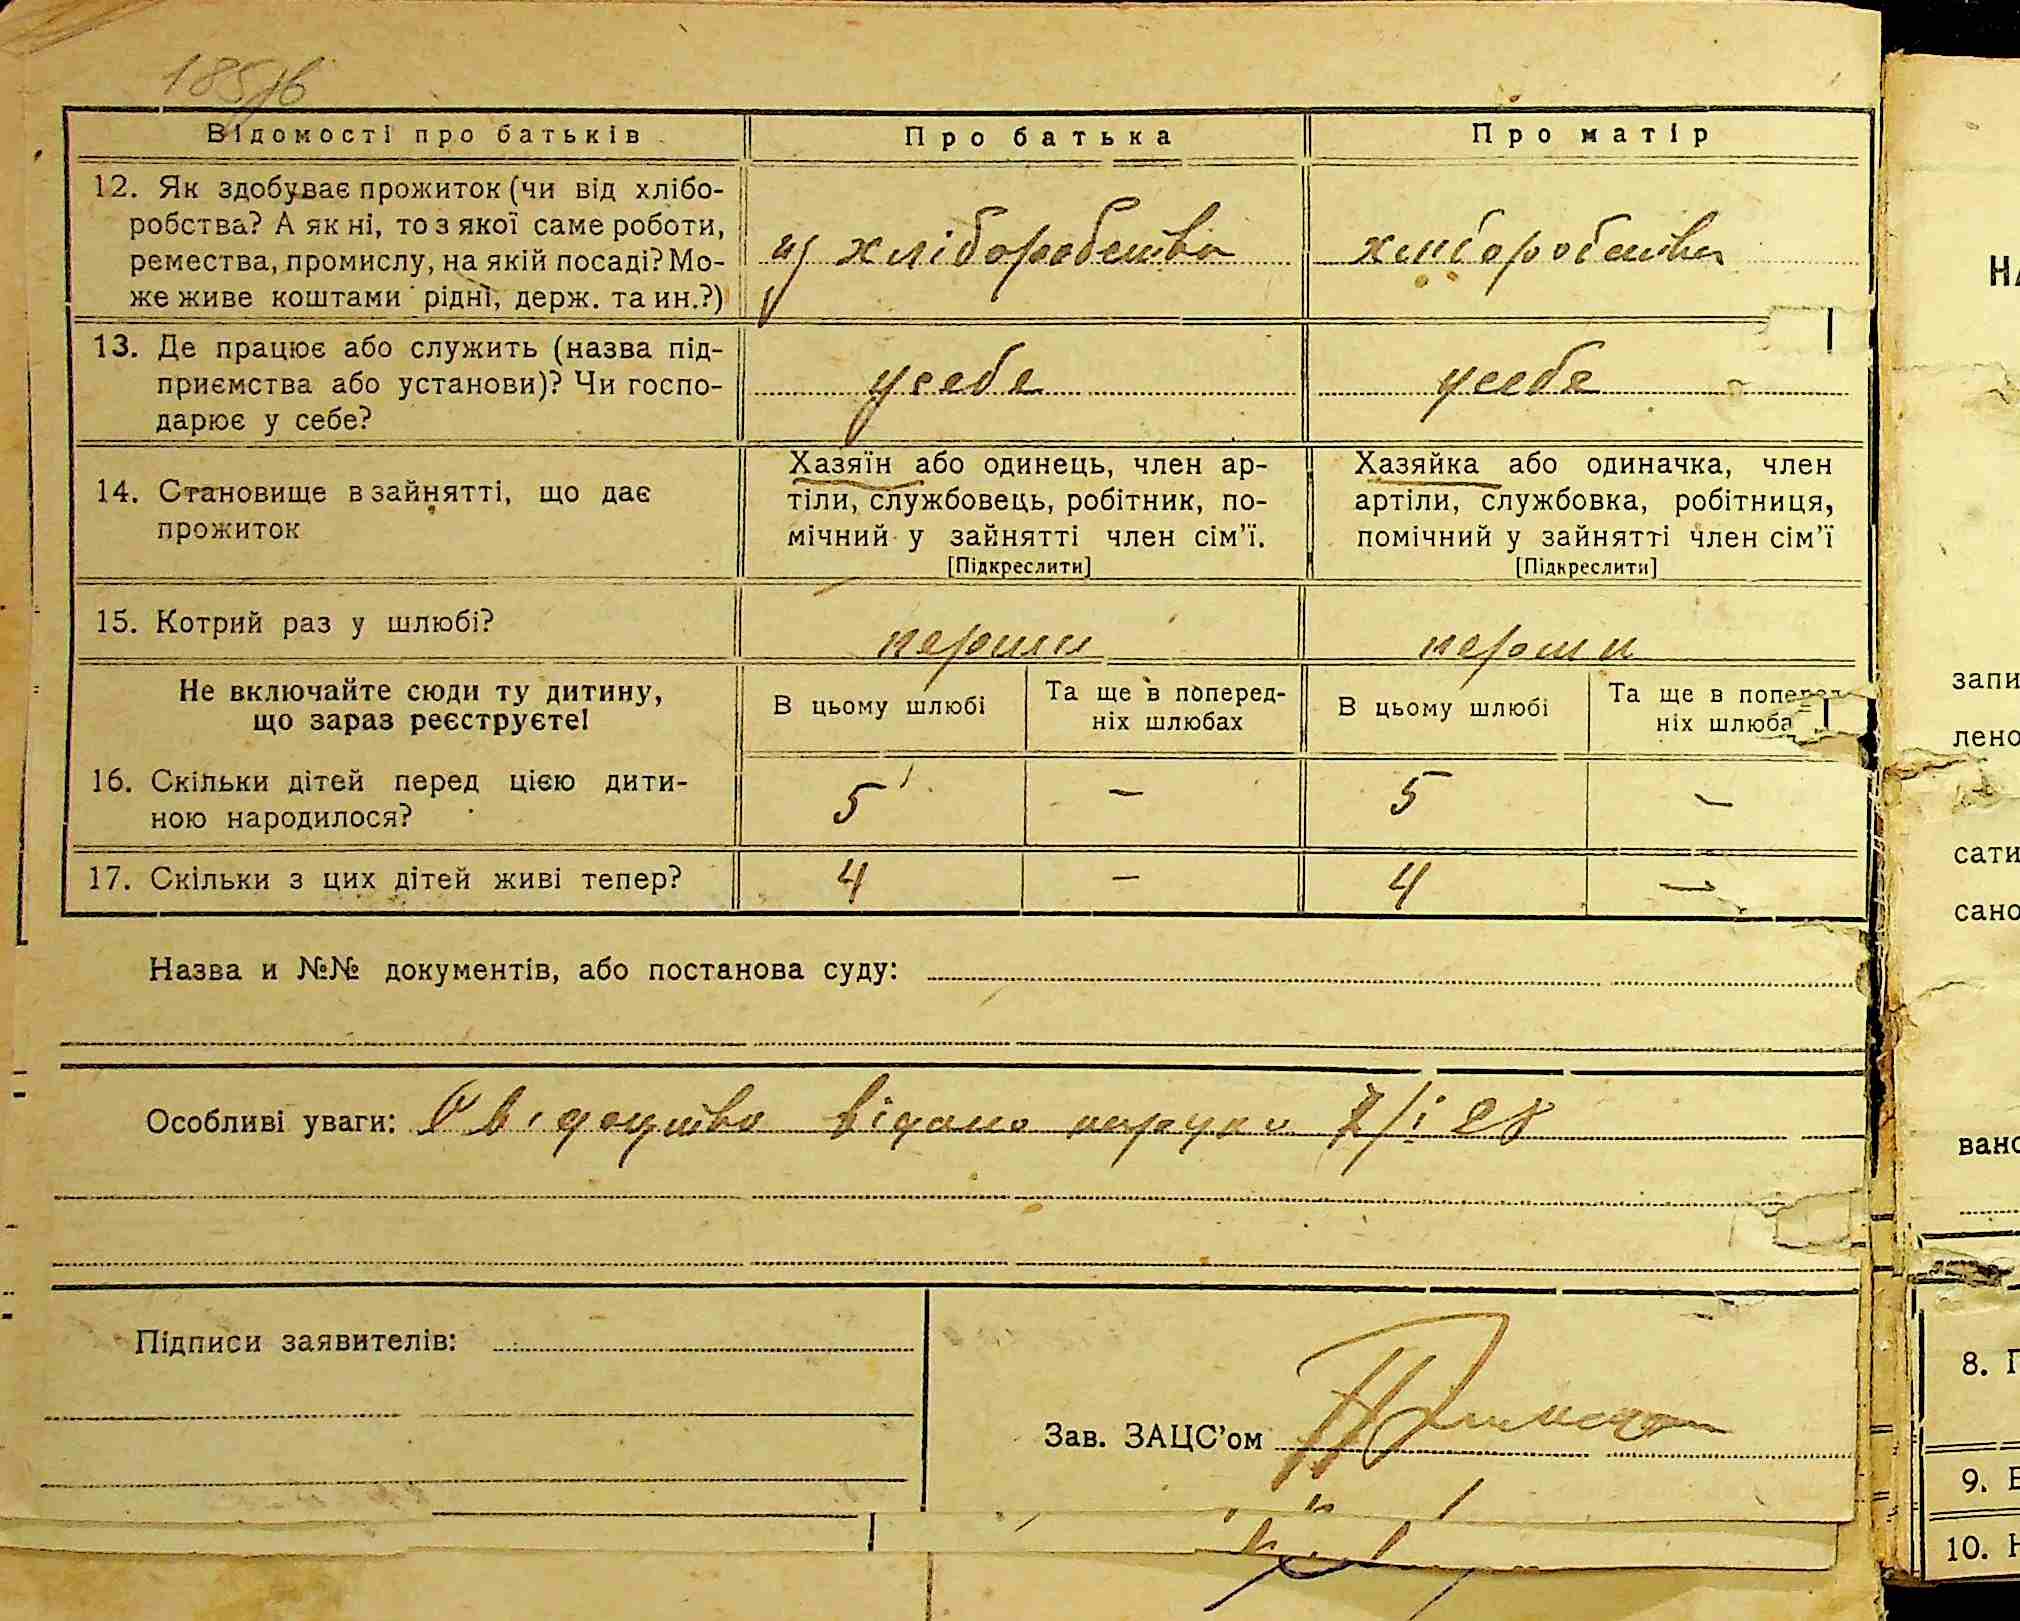 Відомості про батьків
Про батька
Про матір
12. Як здобуває прожиток (чи від хлібо-
робства? А як ні, то з якої саме роботи,
ремества, промислу, на якій посаді? Мо-
же живе коштами рідні, держ. та ин.?)
из хліборобства
хліборобства
13. Де працює або служить (назва під-
приємства або установи)? Чи госпо-
дарює у себе?
усебе
усебе
14. Становище в зайнятті, що дає
прожиток
Хазяїн або одинець, член ар-
тіли, службовець, робітник, по-
мічний у зайнятті член сім'ї.
[Підкреслити]
Хазяйка або одиначка, член
артіли, службовка, робітниця,
помічний у зайнятті член сім'ї
[Підкреслити]
15. Котрий раз у шлюбі?
перши
перши
Не включайте сюди ту дитину,
що зараз реєструєте!
В цьому шлюбі
Та ще в поперед-
ніх шлюбах
В цьому шлюбі
Та ще в поперед
ніх шлюба
16. Скільки дітей перед цією дити-
ною народилося?
5 – 5 –
17. Скільки з цих дітей живі тепер?
4 – 4 –
Назва и №№ документів, або постанова суду:
Особливі уваги: видано 28
Підписи заявителів:
Зав. ЗАЦС'ом
НА
запи
лено
сати
сано
вано
8. П
9. В
10. Н